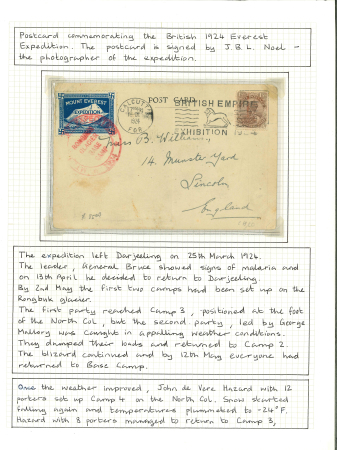 Postcard commemorating the British 1924 Everest
Expedition. The postcard is signed by J.B.L. Noel –
the photographer of the expedition.
POST CARD
MOUNT EVEREST
EXPEDITION
CALCUTTA
BRITISH EMPIRE
EXHIBITION
Miss B. Williams
14. Munster Yard
Lincoln
England
The expedition left Darjeeling on 25th March 1924.
The leader, General Bruce showed signs of malaria and
on 13th April he decided to return to Darjeeling.
By 2nd May the first two camps had been set up on the
Rongbuk glacier.
The first party reached Camp 3, positioned at the foot
of the North Col, but the second party, led by George
Mallory was caught in appalling weather conditions.
They dumped their loads and returned to Camp 2.
The blizzard continued and by 12th May everyone had
returned to Base Camp.
Once the weather improved, John de Vere Hazard with 12
porters set up Camp 4 on the North Col. Snow started
falling again and temperatures plummeted to -24°F.
Hazard with 8 porters managed to return to Camp 3,